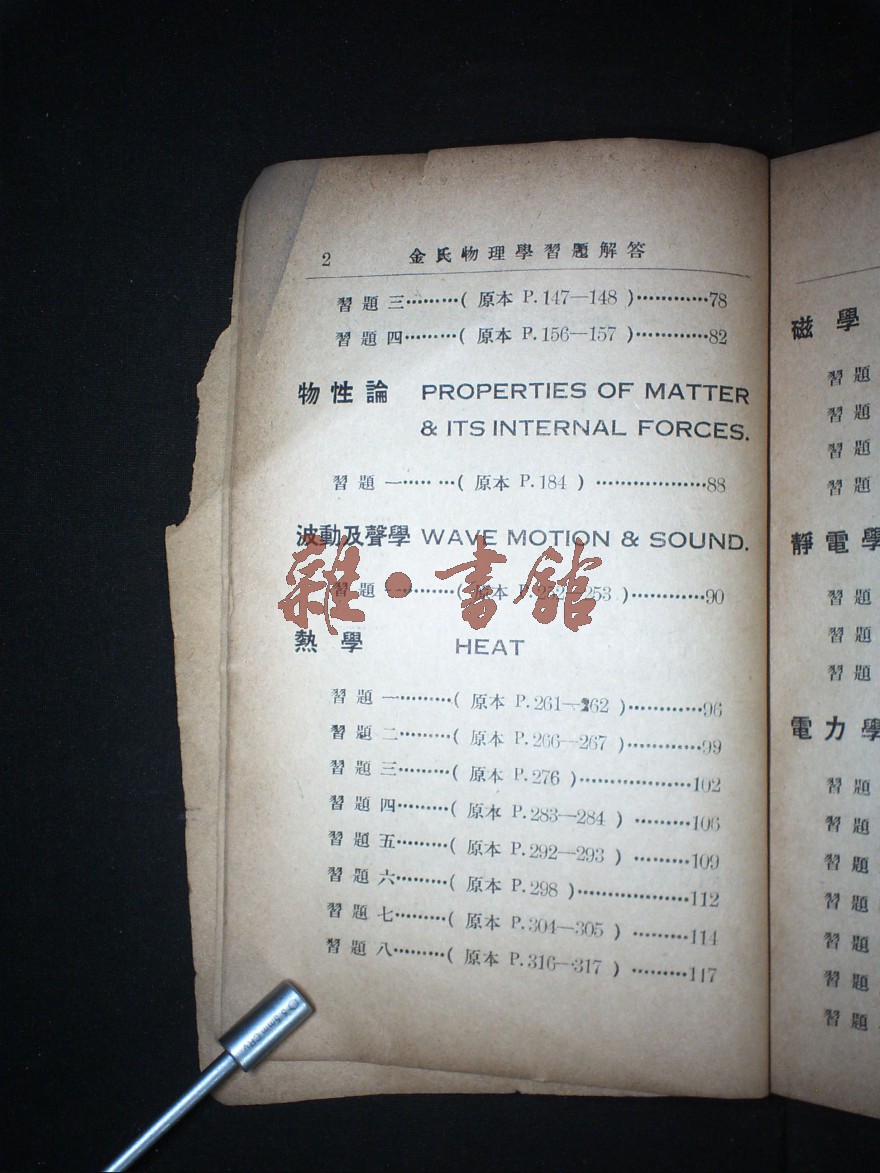 2 金氏物理學習題解答
習題三………( 原本 P.147—148 )…………78
習題四………( 原本 P.156—157 )…………82
物性論 PROPERTIES OF MATTER
& ITS INTERNAL FORCES.
習題一…… …( 原本 P.184 ) …………………88
波動及聲學 WAVE MOTION & SOUND.
習題一………( 原本 P.252—253 )…………90
雜·書館
熱學 HEAT
習題一………( 原本 P.261—262 )…………96
習題二………( 原本 P.266—267 )…………99
習題三………( 原本 P.276 )…………………102
習題四………( 原本 P.283—284 ) …………106
習題五………( 原本 P.292—293 ) …………109
習題六………( 原本 P.298 )…………………112
習題七………( 原本 P.304—305 ) …………114
習題八………( 原本 P.316—317 ) …………117
磁學
習題
習題
習題
習題
靜電學
習題
習題
習題
電力學
習題
習題
習題
習題
習題
習題
習題
5.5mm CRV